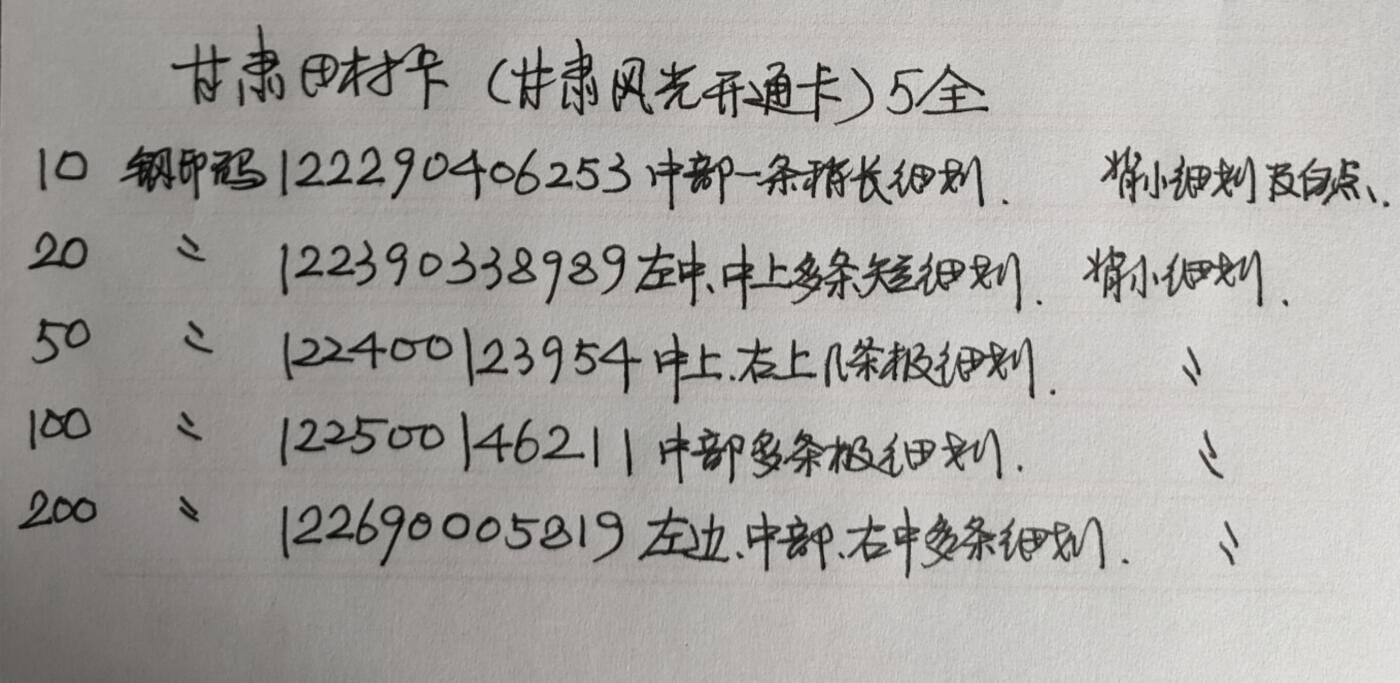 甘肃田村卡（甘肃风光开通卡）5全
10 钢印码 122290406253 中部一条稍长细划. 背小细划及白点、.
20 〃 122390338989 左中、中上多条短细划. 背小细划.
50 〃 122400123954 中上.右上几条极细划. 〃
100 〃 122500146211 中部多条极细划. 〃
200 〃 122690005819 左边.中部.右中多条细划. 〃